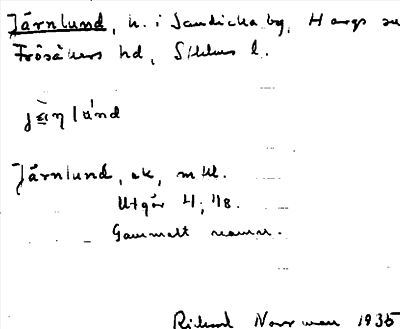 Järnlund, h. i Sandicka by, Hargs sn
Frösåkers hd, Sthlms l.
Järnlund, ek, mtl.
Utgår 4; 48.
Gammalt namn.
Rickard Norrman 1935